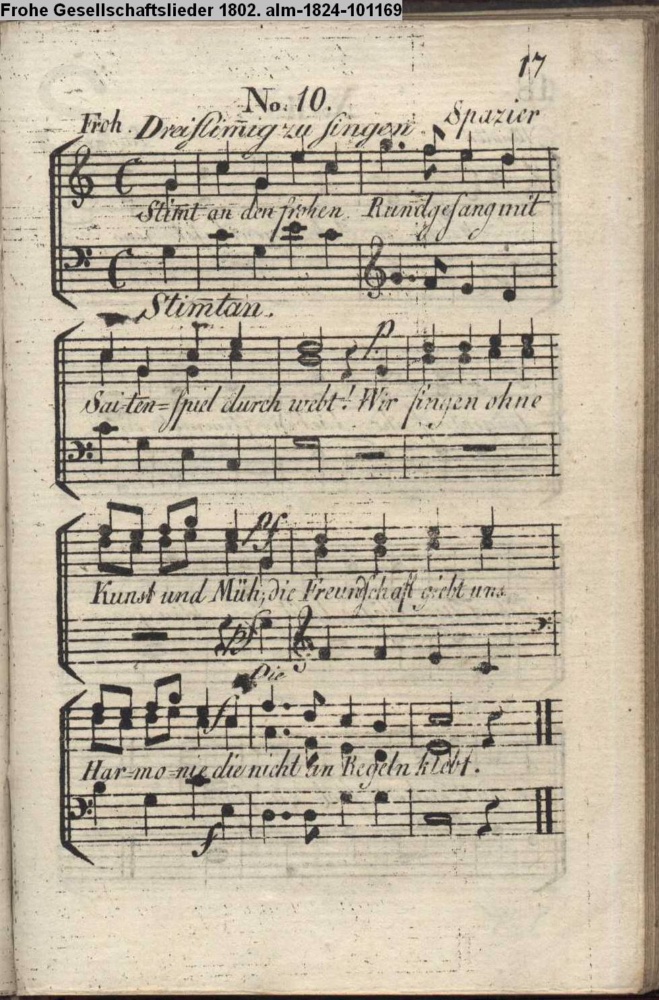 Frohe Gesellschaftslieder 1802. alm-1824-101169
17
No. 10.
Froh. Dreistim̄ig zu singen. Spazier
Stim̄t an den frohen Rundgesang mit
Stim̄t an.
p
Sai-ten=spiel durch webt! Wir singen ohne
pf
Kunst und Müh; die Freundschaft giebt uns
pf
Die
f
Har=mo=nie die nicht an Regeln klebt.
f